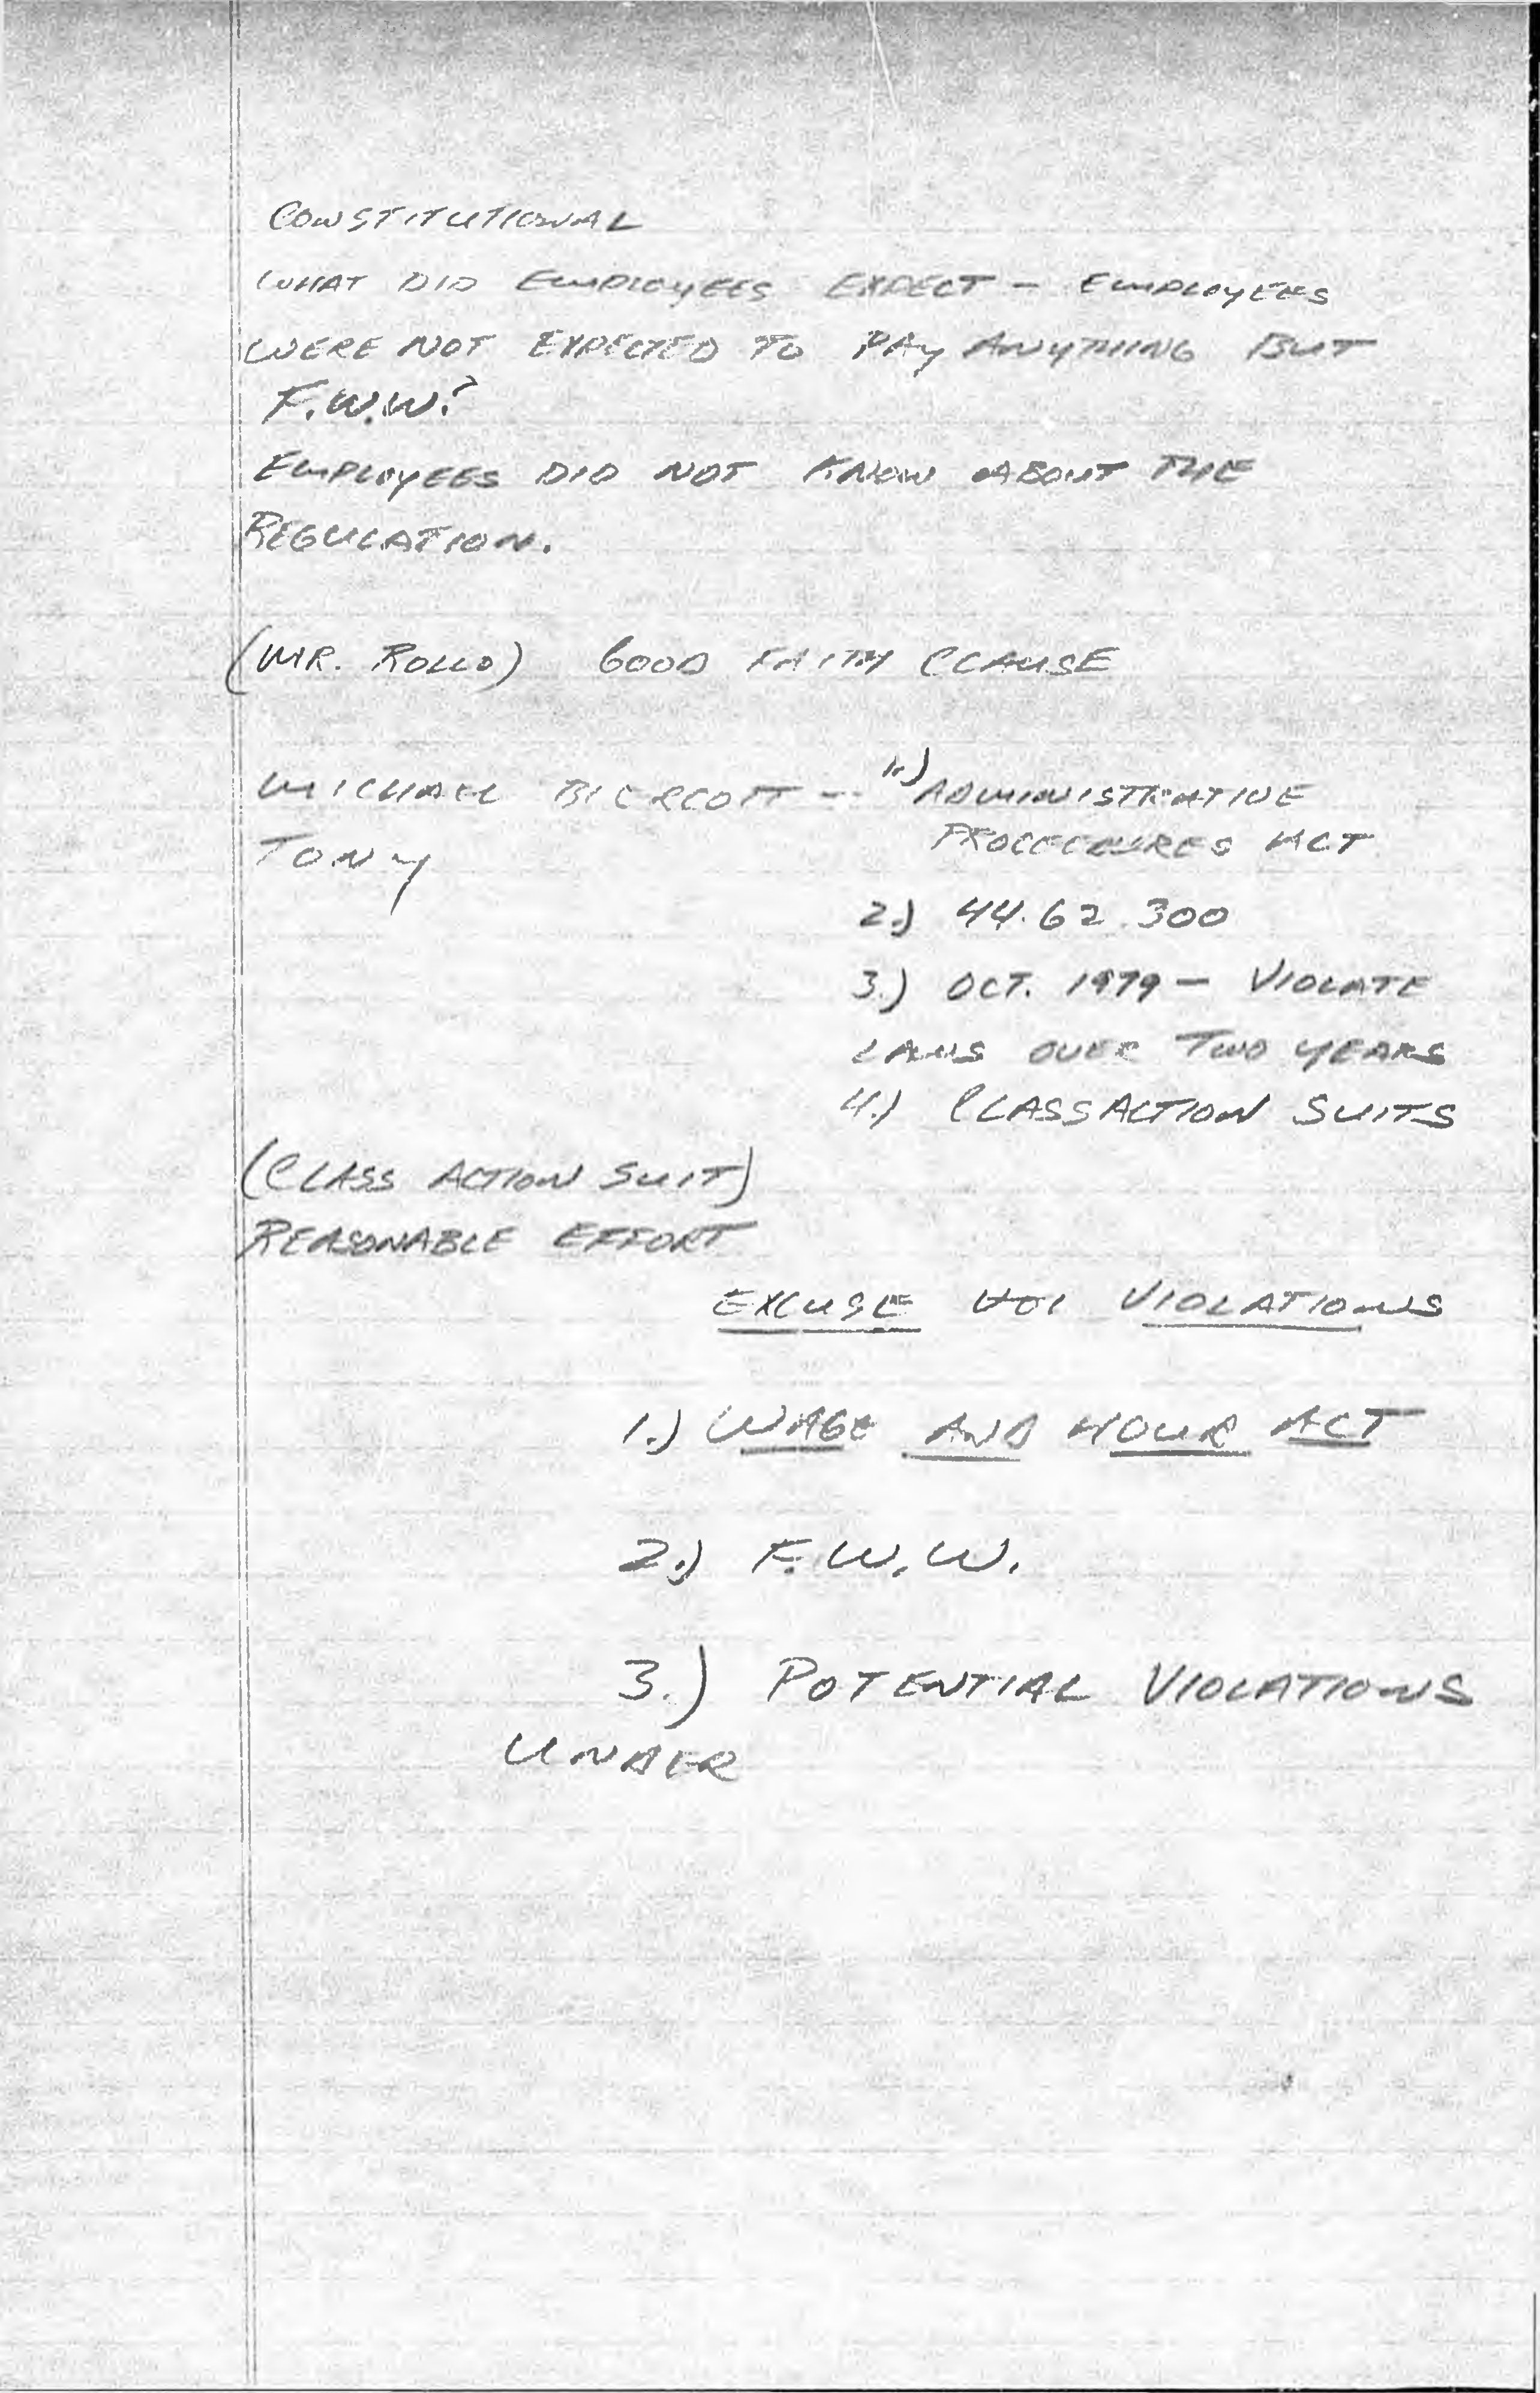 CONSTITUTIONAL
WHAT DID EMPLOYEES EXPECT – EMPLOYEES
WERE NOT EXPECTED TO PAY ANYTHING BUT
F.W.W.?
EMPLOYEES DID NOT KNOW ABOUT THE
REGULATION.
(MR. ROLLO) GOOD FAITH CLAUSE
MICHAEL – 1.) ADMINISTRATIVE
TONY PROCEDURES ACT
2.) 44.62.300
3.) OCT. 1979 – VIOLATE
LAWS OVER TWO YEARS
4.) CLASS ACTION SUITS
(CLASS ACTION SUIT)
REASONABLE EFFORT
EXCUSE VIOLATIONS
1.) WAGE AND HOUR ACT
2.) F.W.W.
3.) POTENTIAL VIOLATIONS
UNDER